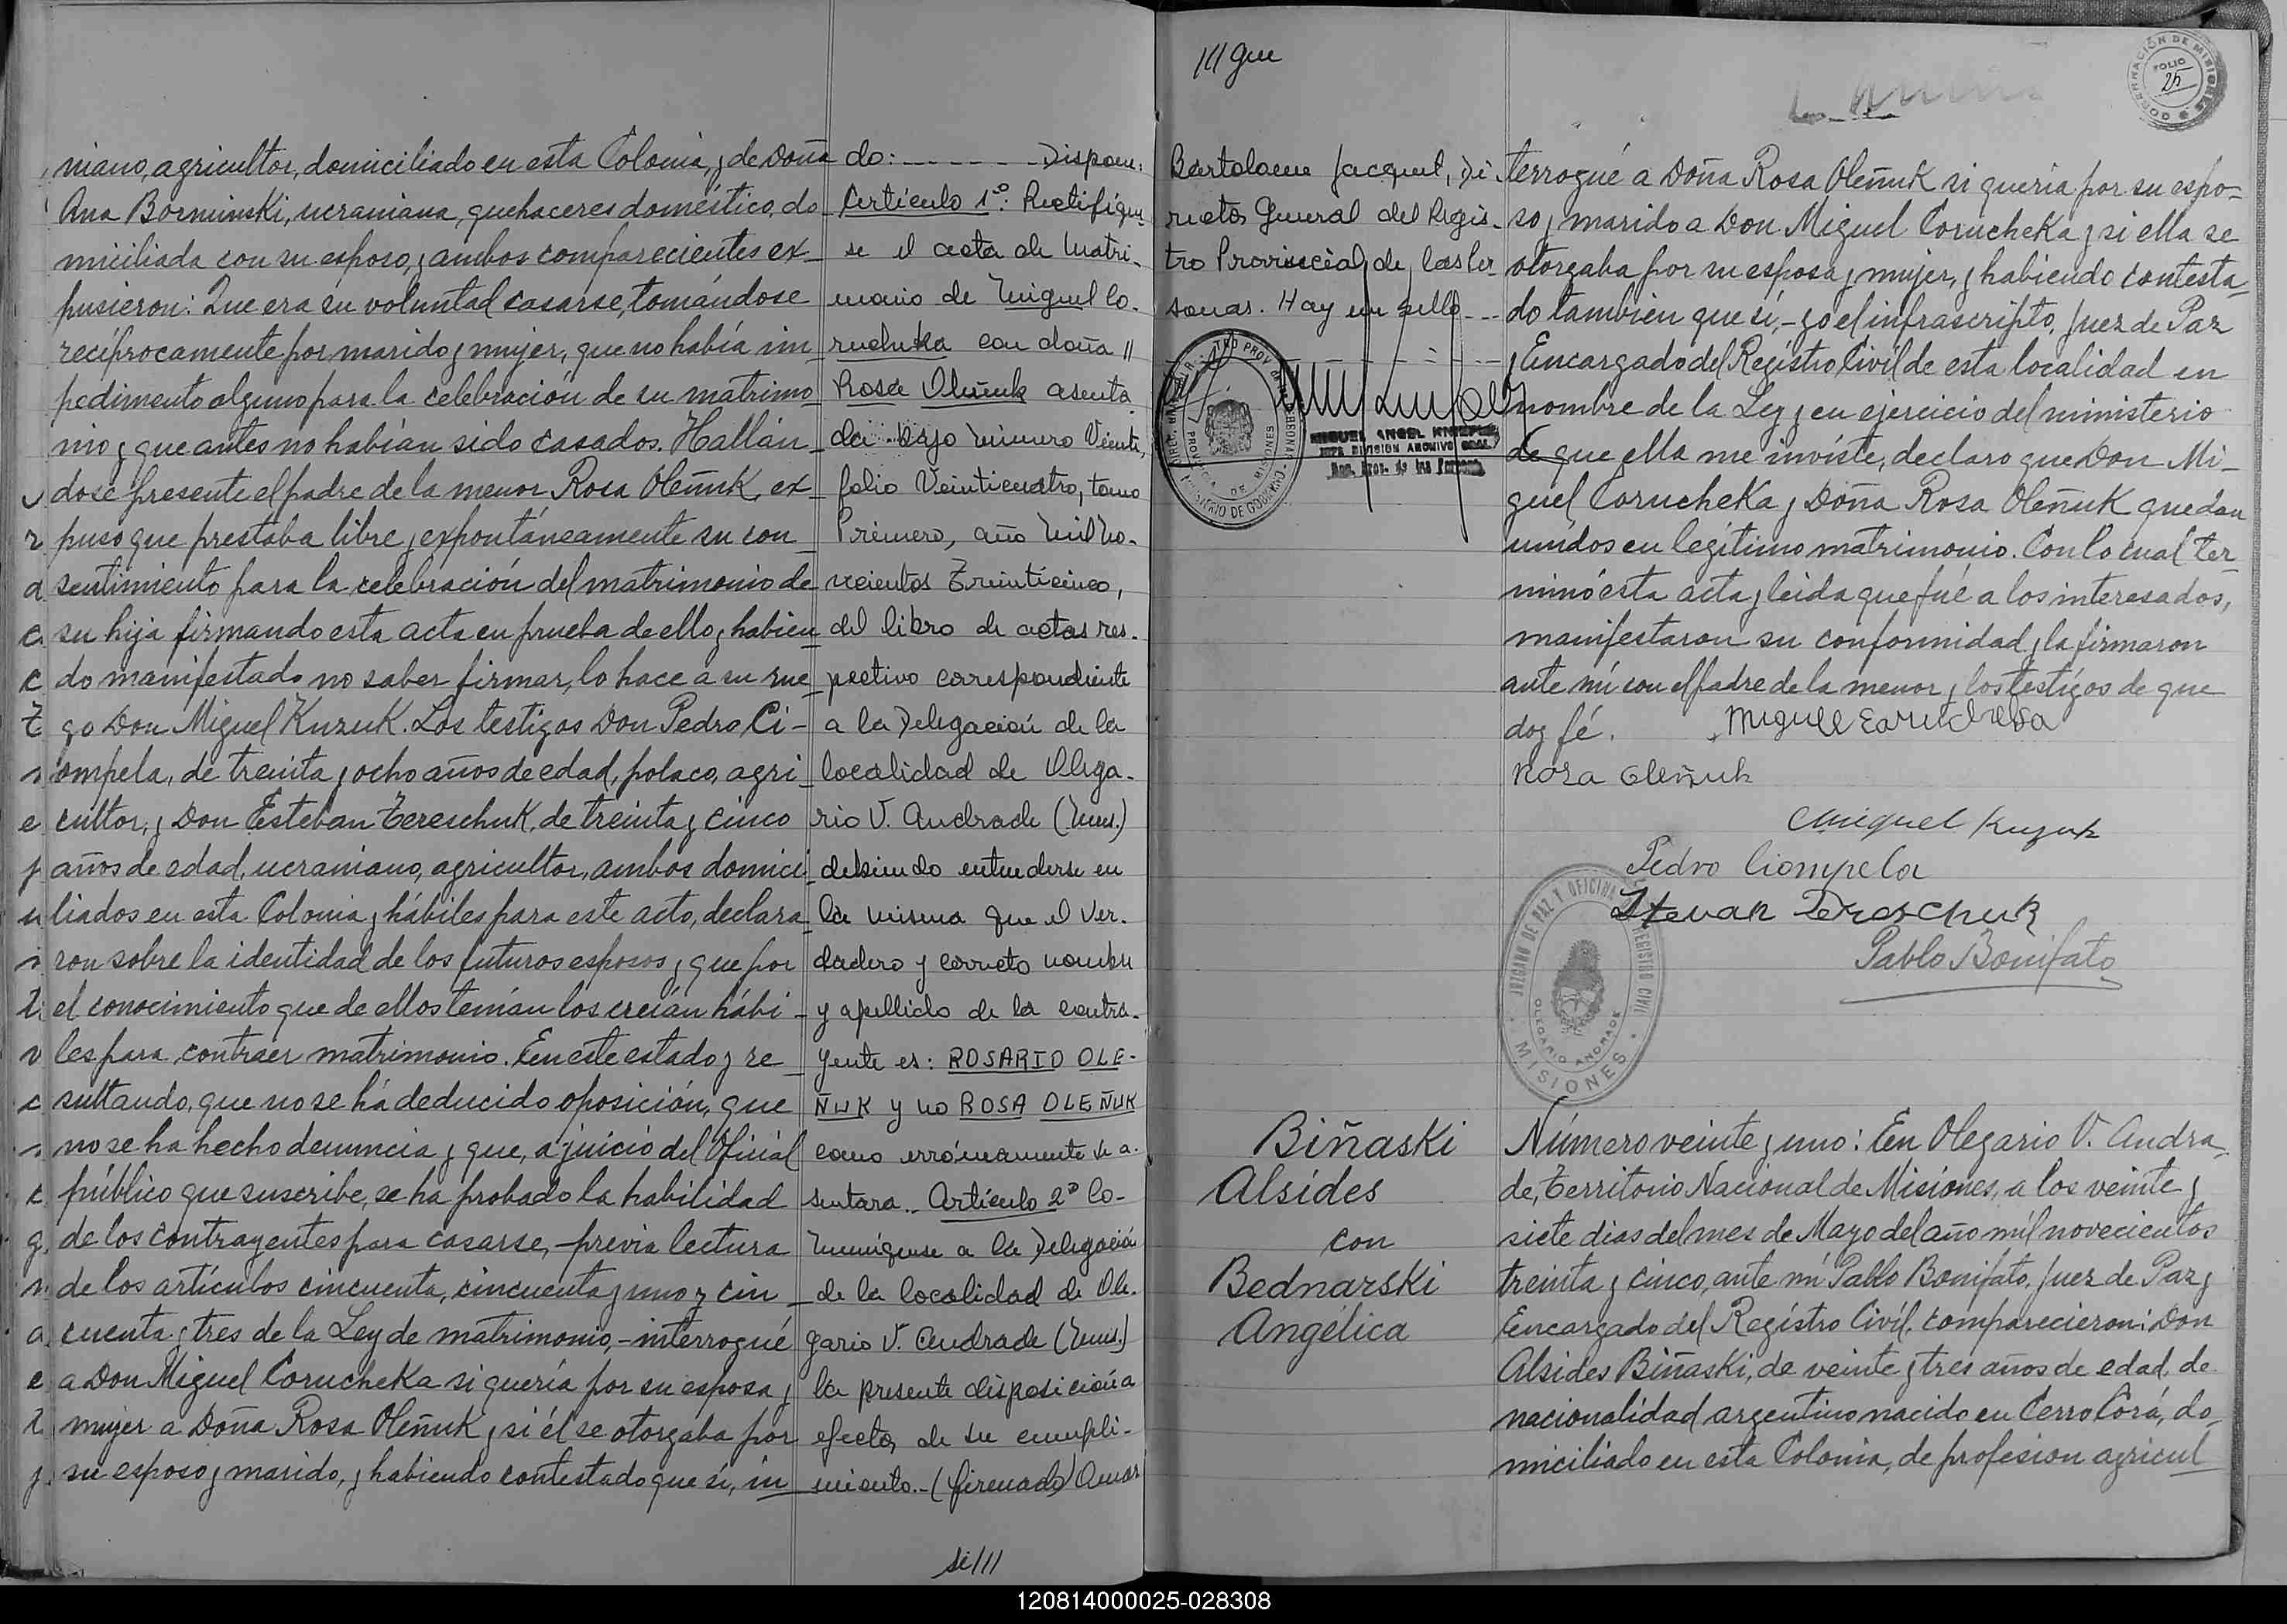 niano, agricultor, domiciliado en esta Colonia, y de Doña
Ana Borninski, ucraniana, quehaceres doméstico, do-
miciliada con su esposo, y ambos comparecientes ex-
pusieron: Que era su voluntad casarse, tomándose
recíprocamente por marido y mujer, que no había im-
pedimento alguno para la celebración de su matrimo-
nio y que antes no habían sido casados. Hallán-
dose presente el padre de la menor Rosa Oleñuk, ex-
puso que prestaba libre y expontáneamente su con-
sentimiento para la celebración del matrimonio de
su hija firmando esta acta en prueba de ello y habien-
do manifestado no saber firmar, lo hace a su rue-
go Don Miguel Kuzuk. Los testigos Don Pedro Ci-
ompela, de treinta y ocho años de edad, polaco, agri-
cultor, y Don Esteban Tereschuk, de treinta y cinco
años de edad, ucraniano, agricultor, ambos domici-
liados en esta Colonia y hábiles para este acto, declara-
ron sobre la identidad de los futuros esposos y que por
el conocimiento que de ellos tenían los creían hábi-
les para contraer matrimonio. En este estado y re-
sultando, que no se há deducido oposición, que
no se ha hecho denuncia y que, a juicio del Oficial
público que suscribe, se ha probado la habilidad
de los contrayentes para casarse, -previa lectura
de los artículos cincuenta, cincuenta y uno y cin-
cuenta y tres de la Ley de matrimonio, -interrogué
a Don Miguel Corucheka si quería por su esposa y
mujer a Doña Rosa Oleñuk y si él se otorgaba por
su esposo y marido, y habiendo contestado que sí, in-
do: - - - - - - Dispone:
Artículo 1º: Rectifíque-
se el acta de matri-
monio de Miguel Co-
rucheka con doña //
Rosa Oleñuk asenta
da bajo número Veinte,
folio Veinticuatro, tomo
Primero, año mil no-
vecientos Treinticinco,
del libro de actas res-
pectivo correspondiente
a la Delegación de la
localidad de Olega-
rio V. Andrade (Mnes.)
debiendo entenderse en
la misma que el ver-
dadero y correcto nombre
y apellido de la contra-
yente es: ROSARIO OLE-
ÑUK y no ROSA OLEÑUK
como erróneamente se a-
sentara.. Artículo 2º Co-
muníquese a la Delegación
de la localidad de Ole-
gario V. Andrade (Mnes.)
la presente disposición a
efectos de su cumpli-
miento.- (firmado) Omar
se///
///gue
Bartolome Jacquet, Di
rector General del Regis-
tro Provincial de las Per
sonas. Hay un sello - - -
PROVINCIA DE MISIONES
MINISTERIO DE GOBIERNO
MIGUEL ANGEL
JEFE DIVISION ARCHIVO GRAL.
Reg. Prov. de las Personas
GOBERNACIÓN DE MISIONES
FOLIO
25
terrogué a Doña Rosa Oleñuk si quería por su espo-
so y marido a Don Miguel Corucheka y si ella se
otorgaba por su esposa y mujer, y habiendo contesta-
do también que sí, - yo el infrascripto, Juez de Paz
y Encargado del Registro Civil de esta localidad en
nombre de la Ley y en ejercicio del ministerio
de que ella me inviste, declaro que Don Mi-
guel Corucheka y Doña Rosa Oleñuk quedan
unidos en legítimo matrimonio. Con lo cual ter-
minó ésta acta y leída que fué a los interesados,
manifestaron su conformidad y la firmaron
ante mí con el padre de la menor y los testigos de que
doy fé.
Rosa Oleñuk
Miguel Kuzuk
Pedro Ciompela
Stevan Tereschuk
Pablo Bonifato
JUZGADO DE PAZ Y OFICINA REGISTRO CIVIL
OLEGARIO ANDRADE
· MISIONES ·
Biñaski
Alsides
con
Bednarski
Angélica
Número veinte y uno: En Olegario V. Andra-
de, Territorio Nacional de Misiones, a los veinte y
siete dias del mes de Mayo del año mil novecientos
treinta y cinco, ante mí Pablo Bonifato, Juez de Paz y
Encargado del Registro Civil, comparecieron: Don
Alsides Biñaski, de veinte y tres años de edad, de
nacionalidad argentino nacido en Cerro Corá, do-
miciliado en esta Colonia, de profesion agricul
120814000025-028308